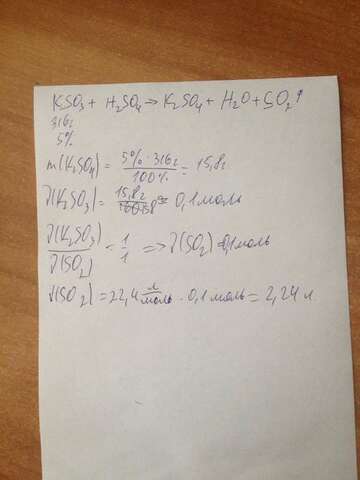 KSO₃ + H₂SO₄ → K₂SO₄ + H₂O + SO₂↑
316г
5%
m(K₂SO₄) = 5% · 316г / 100% = 15,8г
ν(K₂SO₃) = 15,8г / 158 = 0,1 моль
ν(K₂SO₃) / ν(SO₂) = 1 / 1 => ν(SO₂) = 0,1 моль
V(SO₂) = 22,4 л/моль · 0,1 моль = 2,24 л